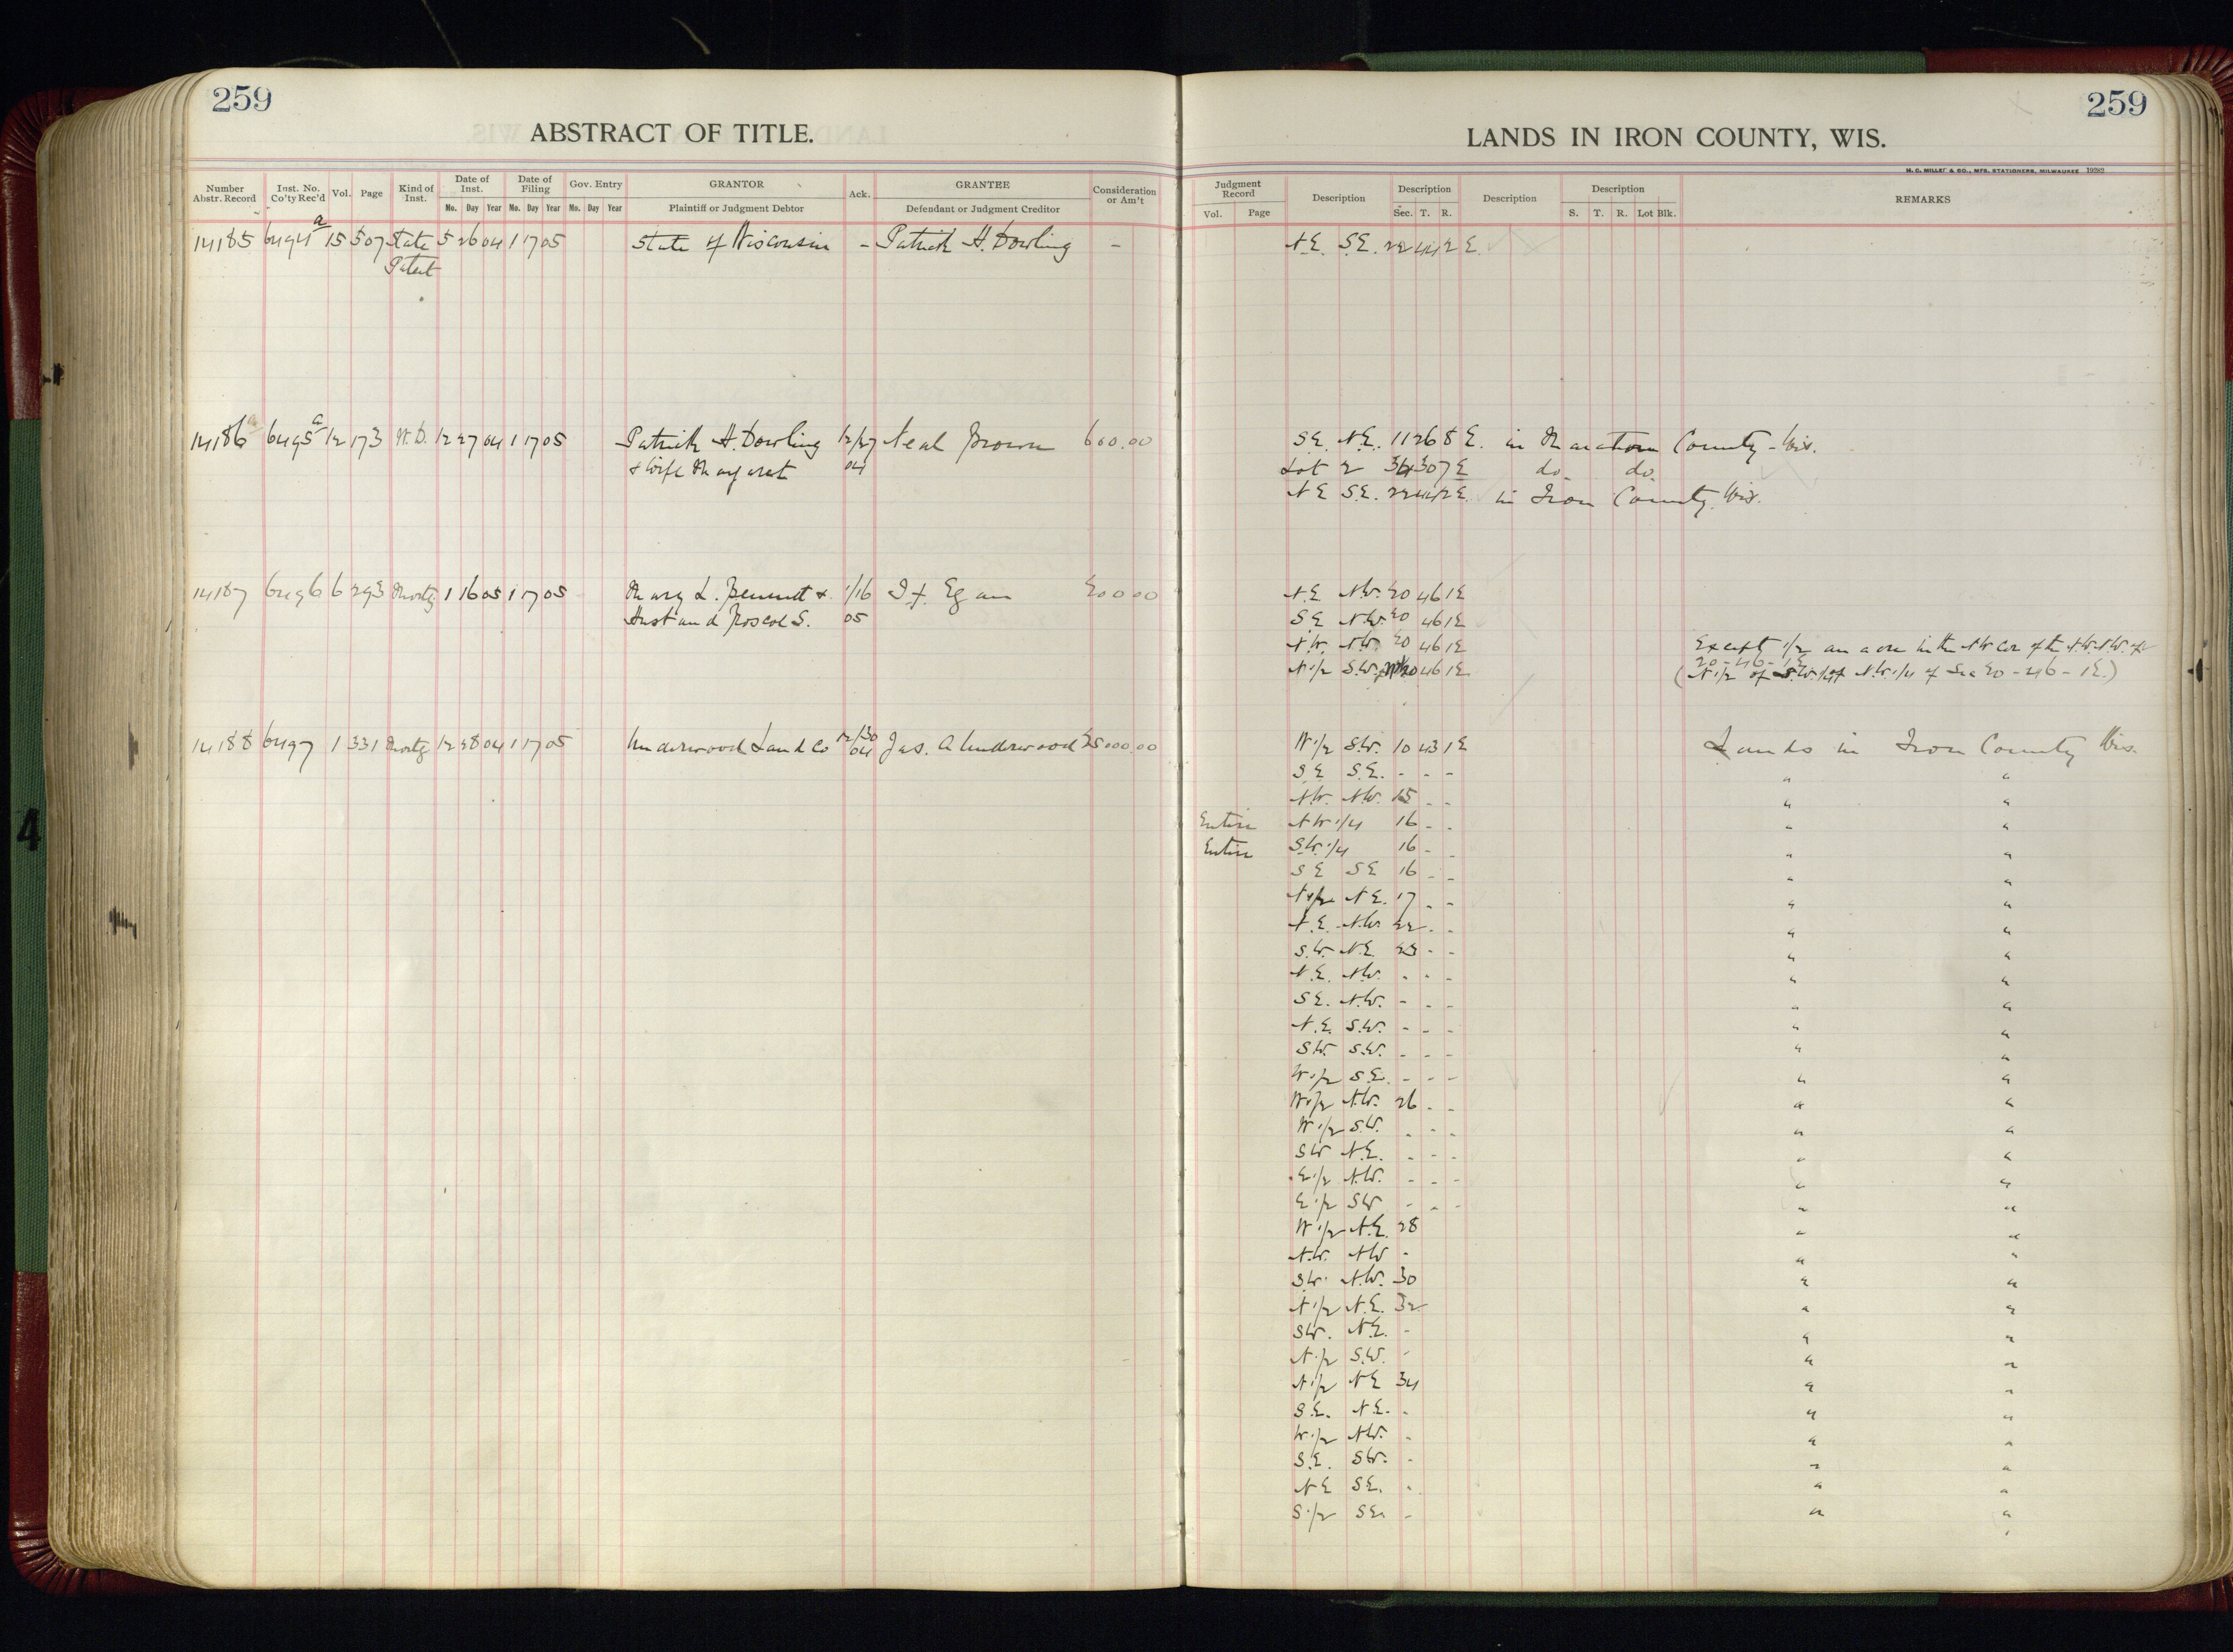 259
259
ABSTRACT OF TITLE.
LANDS IN IRON COUNTY, WIS.
H. C. MILLER & CO., MFG. STATIONERS, MILWAUKEE 19282
Number Abstr. Record Inst. No. Co'ty Rec'd Vol. Page Kind of Inst. Date of Inst. Date of Filing Gov. Entry GRANTOR Ack. GRANTEE Consideration or Am't
Mo. Day Year Mo. Day Year Mo. Day Year Plaintiff or Judgment Debtor Defendant or Judgment Creditor
Judgment Record Description Description Description Description REMARKS
Vol. Page Sec. T. R. S. T. R. Lot Blk.
14185 6494a 15 507 State 5 26 04 1 17 05 State of Wisconsin - Patrick H. Dowling - N.E. S.E. 22 44 2 E.
Patent
14186 6495a 12 173 W.D. 12 27 04 1 17 05 Patrick H. Dowling 12/27 Neal Brown 600.00 S.E. N.E. 11 26 8 E. in Marathon County - Wis.
& Wife Margaret 04 Lot 2 34 30 7 E do do.
N E S.E. 22 44 2 E. in Iron County, Wis.
14187 6496 6 293 Mortg 1 16 05 1 17 05 Mary L. Bennett & 1/16 Egan 20000 N.E. N.W. 20 46 1 E
Husband Roscoe S. 05 S E N.W. 20 46 1 E
N.W. N.W. 20 46 1 E Except 1/2 an acre in the NW Cor of the N.W. N.W. of
20-46-1 E
N 1/2 S.W. 20 46 1 E (N 1/2 of S.W. 1/4 of N.W. 1/4 of Sec 20-46-1 E.)
14188 6497 1 331 Mortg 12 28 04 1 17 05 Underwood Land Co 12/30 04 Jas. A Underwood 25000.00 W 1/2 S.W. 10 43 1 E Lands in Iron County Wis.
S E S.E. - - - " "
N.W. N.W. 15 - - " "
Entire N W 1/4 16 - - " "
Entire S.W. 1/4 16 - - " "
S E S E 16 - - " "
N 1/2 N E. 17 - - " "
N.E. N.W. 22 - - " "
S.W. N.E. 23 - - " "
N.E. N.W. - - - " "
S E. N.W. - - - " "
N.E. S.W. - - - " "
S W. S.W. - - - " "
W 1/2 S.E. - - - " "
W 1/2 N.W. 26 - - " "
W 1/2 S.W. - - - " "
S W N.E. - - - " "
E 1/2 N.W. - - - " "
E 1/2 S W - - - " "
W 1/2 N.E. 28 " "
N.W. N W - " "
S W. N.W. 30 " "
N 1/2 N.E. 32 " "
S W. N.E. - " "
N 1/2 S.W. - " "
N 1/2 N E 34 " "
S.E. N.E. - " "
W 1/2 N.W. - " "
S.E. S W. - " "
N E S E. - " "
S 1/2 S E. - " "
4